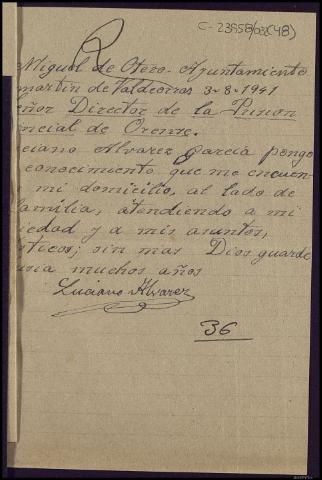 C-23958/03(48)
Miguel de Otero. Ayuntamiento
martin de Valdeorras 3-8-1941
eñor Director de la Prision
incial de Orense.
ciano Alvarez Garcia pongo
conocimiento que me encuen
mi domicilio, al lado de
familia, atendiendo a mi
iedad y a mis asuntos,
sticos; sin mas Dios guarde
usia muchos años
Luciano Alvarez
36